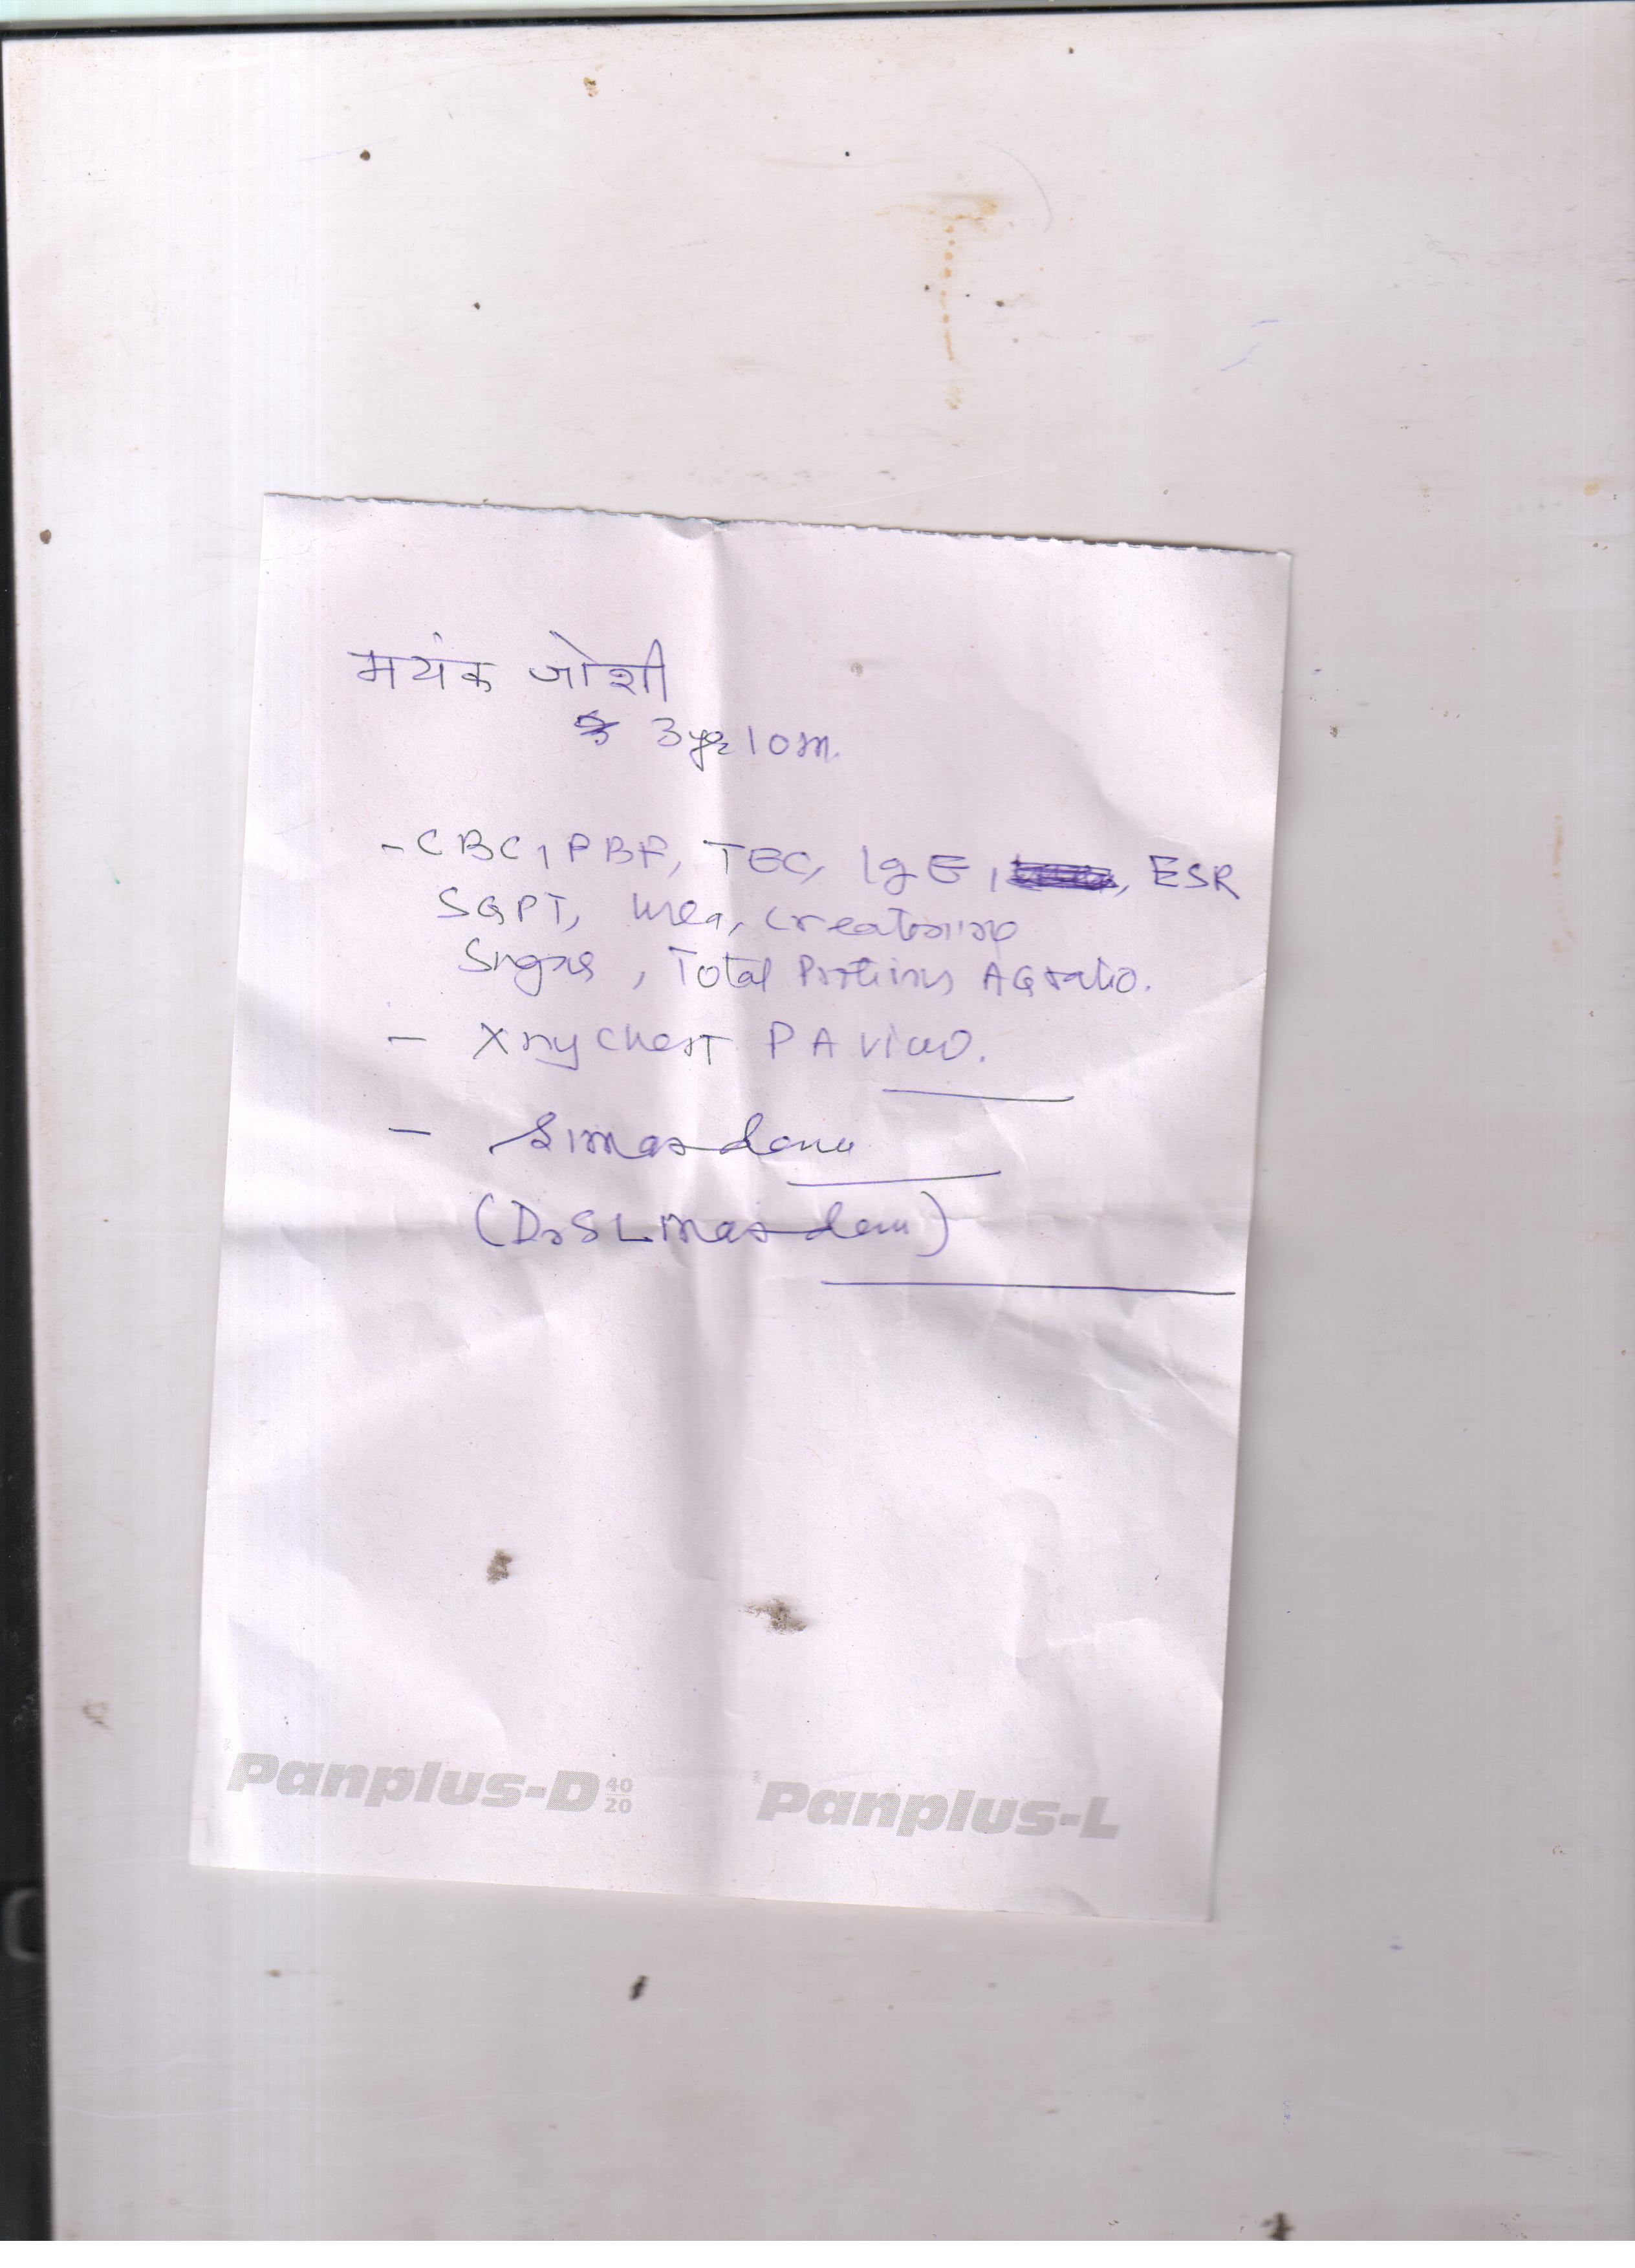 मयंक जोशी
3yr 10m.
- CBC, PBF, TEC, IgE, ESR
SGPT, Urea, Creatinine
Sugar, Total Proteins AG ratio.
- Xray Chest PA view.
- Slmardana
(Dr S L Mardana)
Panplus-D 40 20
Panplus-L